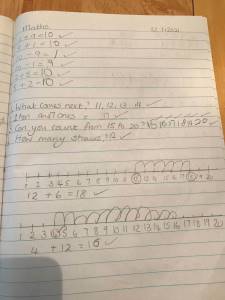 Maths
+ 9 = 10 ✓
+ 1 = 10 ✓
10 - 9 = 1 ✓
- 1 = 9 ✓
+ 8 = 10 ✓
+ 2 = 10 ✓
1. What comes next? 11, 12, 13, 14 ✓
ten and ones = 17 ✓
Can you count from 15 to 20? 15 16 17 18 19 20 ✓
How many straws? ✓
0 1 2 3 4 5 6 7 8 9 10 11 12 13 14 15 16 17 18 19 20
12 + 6 = 18 ✓
0 1 2 3 4 5 6 7 8 9 10 11 12 13 14 15 16 17 18 19 20
4 + 12 = 16 ✓